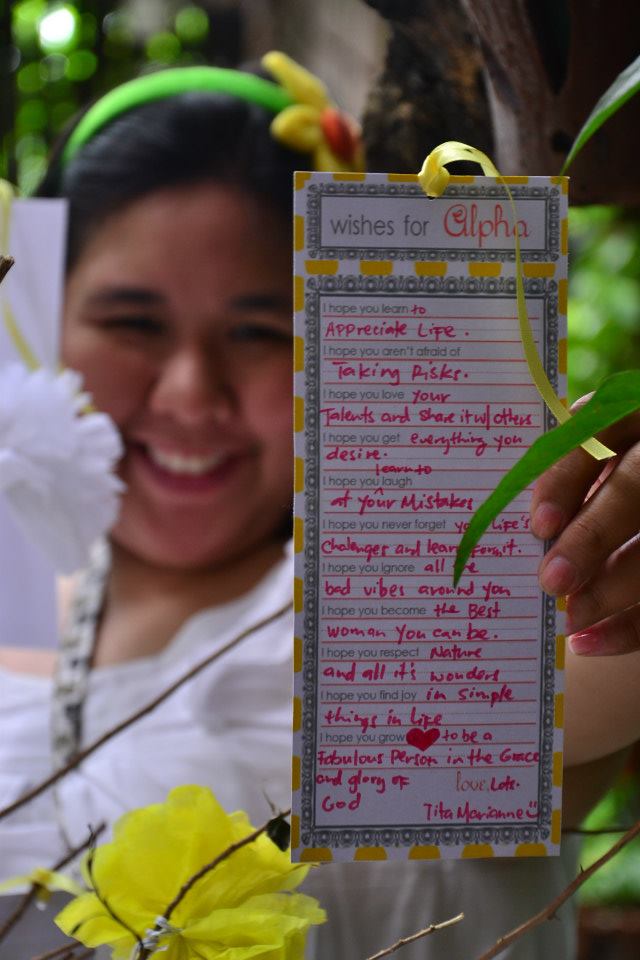 wishes for Alpha
I hope you learn to
Appreciate Life.
I hope you aren't afraid of
Taking Risks.
I hope you love your
Talents and share it w/ others
I hope you get everything you
desire.
learn to
I hope you laugh
at your Mistakes
I hope you never forget life's
Challenges and learn form it.
I hope you ignore all
bad vibes around you
I hope you become the Best
woman you can be.
I hope you respect Nature
and all it's wonders
I hope you find joy in simple
things in life
I hope you grow to be a
Fabulous Person in the Grace
and glory of love, Lots.
God Tita Marianne